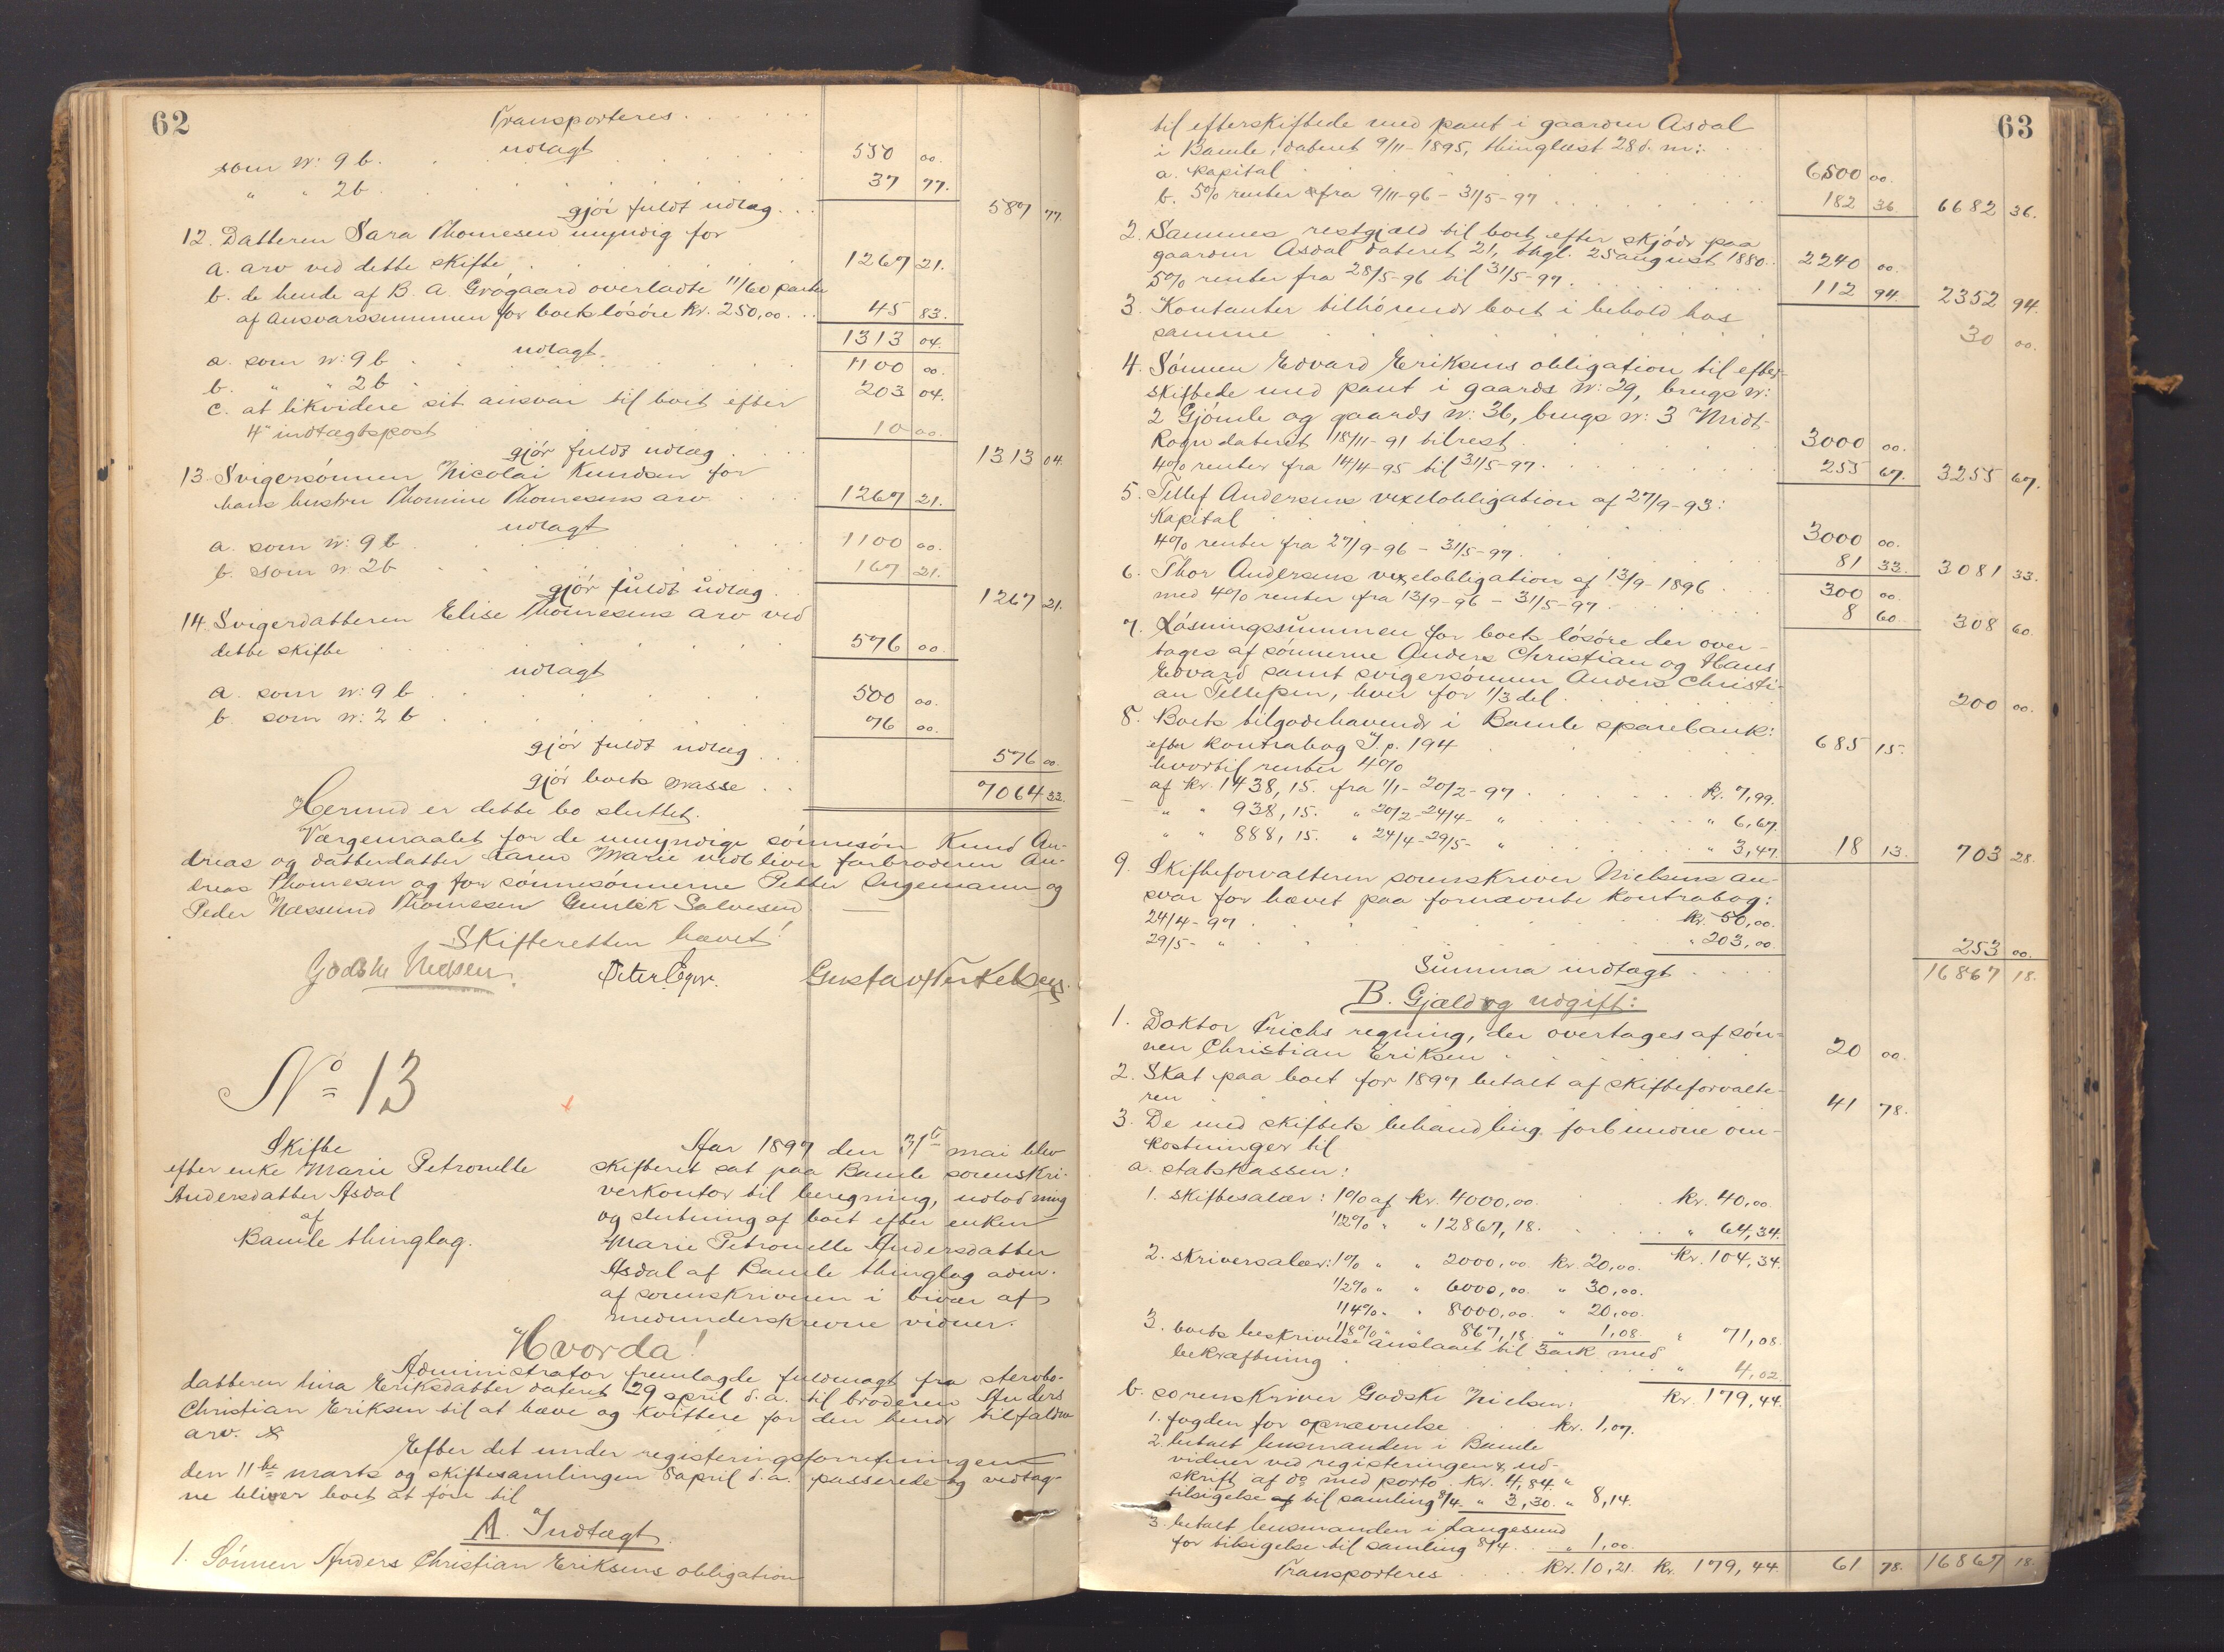 62
Transporteres . . . . .
udlagt
som N: 9 b. 550 00.
" " 2 b. 37 77.
gjør fuldt udlæg . . . 587 77.
12. Datteren Sara Thomesen myndig for
a. arv ved dette skifte 1267 21.
b. de hende af B. A. Grógaard overladte 11/60 parter
af ansvarssummen for boets lósóre kr. 250,00 . . 45 83.
1313 04.
udlagt
a. som N: 9 b 1100 00.
b. " " 2 b 203 04.
c. at likvidere sit ansvar til boet efter
4" indtægtspost 10 00.
gjór fuldt udlæg 1313 04.
13. Svigersónnen Nicolai Knudsen for
hans hustru Thomine Thomesens arv 1267 21.
udlagt
a. som N: 9 b 1100 00.
b. som N: 2 b 167 21.
gjór fuldt udlæg 1267 21.
14. Svigerdatteren Elise Thomesens arv ved
dette skifte 576 00
udlagt
a. som N: 9 b 500 00.
b. som N: 2 b 76 00.
gjór fuldt udlæg . . . 576 00.
gjór boets masse . . 7064 33.
Hermed er dette bo sluttet.
Værgemaalet for de umyndige sónnesón Knud An-
dreas og datterdatter Karen Marie vedbliver farbroderen An-
dreas Thomesen og for sónnesónnerne Petter Ingemann og
Peder Næssund Thomesen Gunlek Salvesen —
Skifteretten hævet!
Godske Nielsen. Peter Eger. Gustav Terkelsen.
No 13
Skifte
efter enke Marie Petronelle
Andersdatter Asdal
af
Bamle thinglag.
Aar 1897 den 31te mai blev
skifteret sat paa Bamle sorenskri-
verkontor til beregning, udlodning
og slutning af boet efter enken
Marie Petronelle Andersdatter
Asdal af Bamle thinglag adm.
af sorenskriveren i bivær af
medunderskrevne vidner.
Hvorda!
Administrator fremlagde fuldmagt fra stervbo-
datteren Lina Eriksdatter dateret 29 april d. a. til broderen Anders
Christian Eriksen til at hæve og kvittere for den hende tilfaldne
arv.
Efter det under registeringsforretningen
den 11te marts og skiftesamlingen 8 april d. a. passerede og vedtag-
ne bliver boet at fóre til
A. Indtægt
1. Sónnen Anders Christian Eriksens obligation
63
til efterskiftede med pant i gaarden Asdal
i Bamle, dateret 9/11-1895, thinglæst 28 d. m:
a. kapital 6500 00.
b. 5% renter fra 9/11-96 - 31/5-97 182 36. 6682 36.
2. Sammes restgjæld til boet efter skjóde paa
gaarden Asdal dateret 21, thgl. 25 august 1880. 2240 00.
5% renter fra 28/5-96 til 31/5-97 112 94. 2352 94.
3. Kontanter tilhórende boet i behold hos
samme 30 00.
4. Sónnen Edvard Eriksens obligation til efter-
skiftede med pant i gaards N: 29, brugs N:
2 Gjómle og gaards N: 36, brugs N: 3 Midt-
Rogn dateret 18/11-91 tilrest 3000 00.
4% renter fra 14/4-95 til 31/5-97 255 67. 3255 67.
5. Tellef Andersens vexelobligation af 27/9-93:
Kapital 3000 00.
4% renter fra 27/9-96 - 31/5-97 81 33. 3081 33.
6. Thor Andersens vexelobligation af 13/9-1896 300 00.
med 4% renter fra 13/9-96 - 31/5-97 8 60. 308 60.
7. Lósningssummen for boets lósóre der over-
tages af sónnerne Anders Christian og Hans
Edvard samt svigersónnen Anders Christi-
an Tellefsen, hver for 1/3 del 200 00.
8. Boets tilgodehavende i Bamle sparebank:
efter kontrabog I. p. 194 685 15.
hvortil renter 4%
af kr. 1438,15. fra 1/1-20/2-97 kr. 7,99.
" " 938,15. " 20/2-24/4- " " 6,67.
" " 888,15. " 24/4-29/5- " " 3,47. 18 13. 703 28.
9. Skifteforvalteren sorenskriver Nielsens an-
svar for hævet paa fornævnte kontrabog:
24/4-97 kr. 50,00.
29/5- " " 203,00. 253 00.
Summa indtægt 16867 18.
B. Gjæld og udgift:
1. Doktor Frichs regning, der overtages af són-
nen Christian Eriksen 20 00.
2. Skat paa boet for 1897 betalt af skifteforvalte-
ren 41 78.
3. De med skiftets behandling forbundne om-
kostninger til
a. statskassen:
1. skiftesalær: 1% af kr. 4000,00. kr. 40,00
1/2% " " 12867,18. " 64,34.
kr. 104,34.
2. skriversalær: 1% " " 2000,00. kr. 20,00.
1/2% " " 6000,00. " 30,00.
1/4% " " 8000,00. " 20,00.
1/8% " " 867,18. " 1,08. " 71,08.
3. boets beskrivelse anslaaet til 3 ark med
bekræftning " 4,02.
kr. 179,44.
b. sorenskriver Godske Nielsen:
1. fogden for opnævnelse kr. 1,07.
2. betalt lensmanden i Bamle
vidner ved registeringen &, ud-
skrift af do med porto kr. 4,84. "
tilsigelse af til samling 8/4. " 3,30. " 8,14.
3. betalt lensmanden i Langesund
for tilsigelse til samling 8/4. " 1,00.
Transporteres kr. 10,21. kr. 179,44. 61 78. 16867 18.